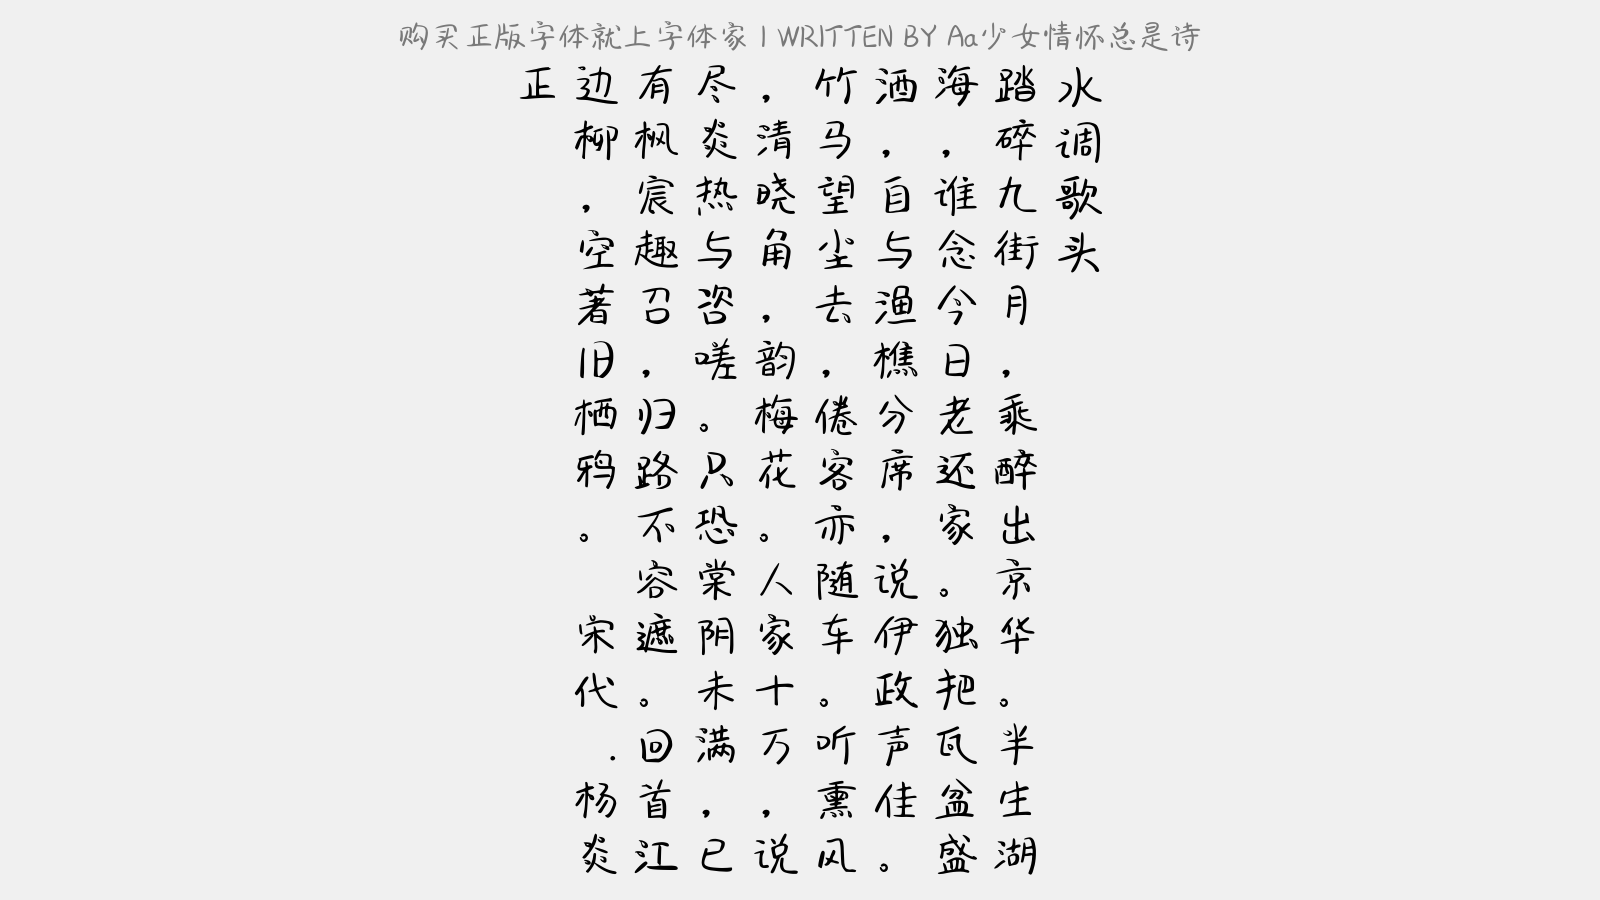 购买正版字体就上字体家 | WRITTEN BY Aa少女情怀总是诗
水调歌头
踏碎九街月，乘醉出京华。半生湖
海，谁念今日老还家。独把瓦盆盛
酒，自与渔樵分席，说伊政声佳。
竹马望尘去，倦客亦随车。听熏风
，清晓角，韵梅花。人家十万，说
尽炎热与咨嗟。只恐棠阴未满，已
有枫宸趣召，归路不容遮。回首江
边柳，空著旧栖鸦。 宋代 . 杨炎
正